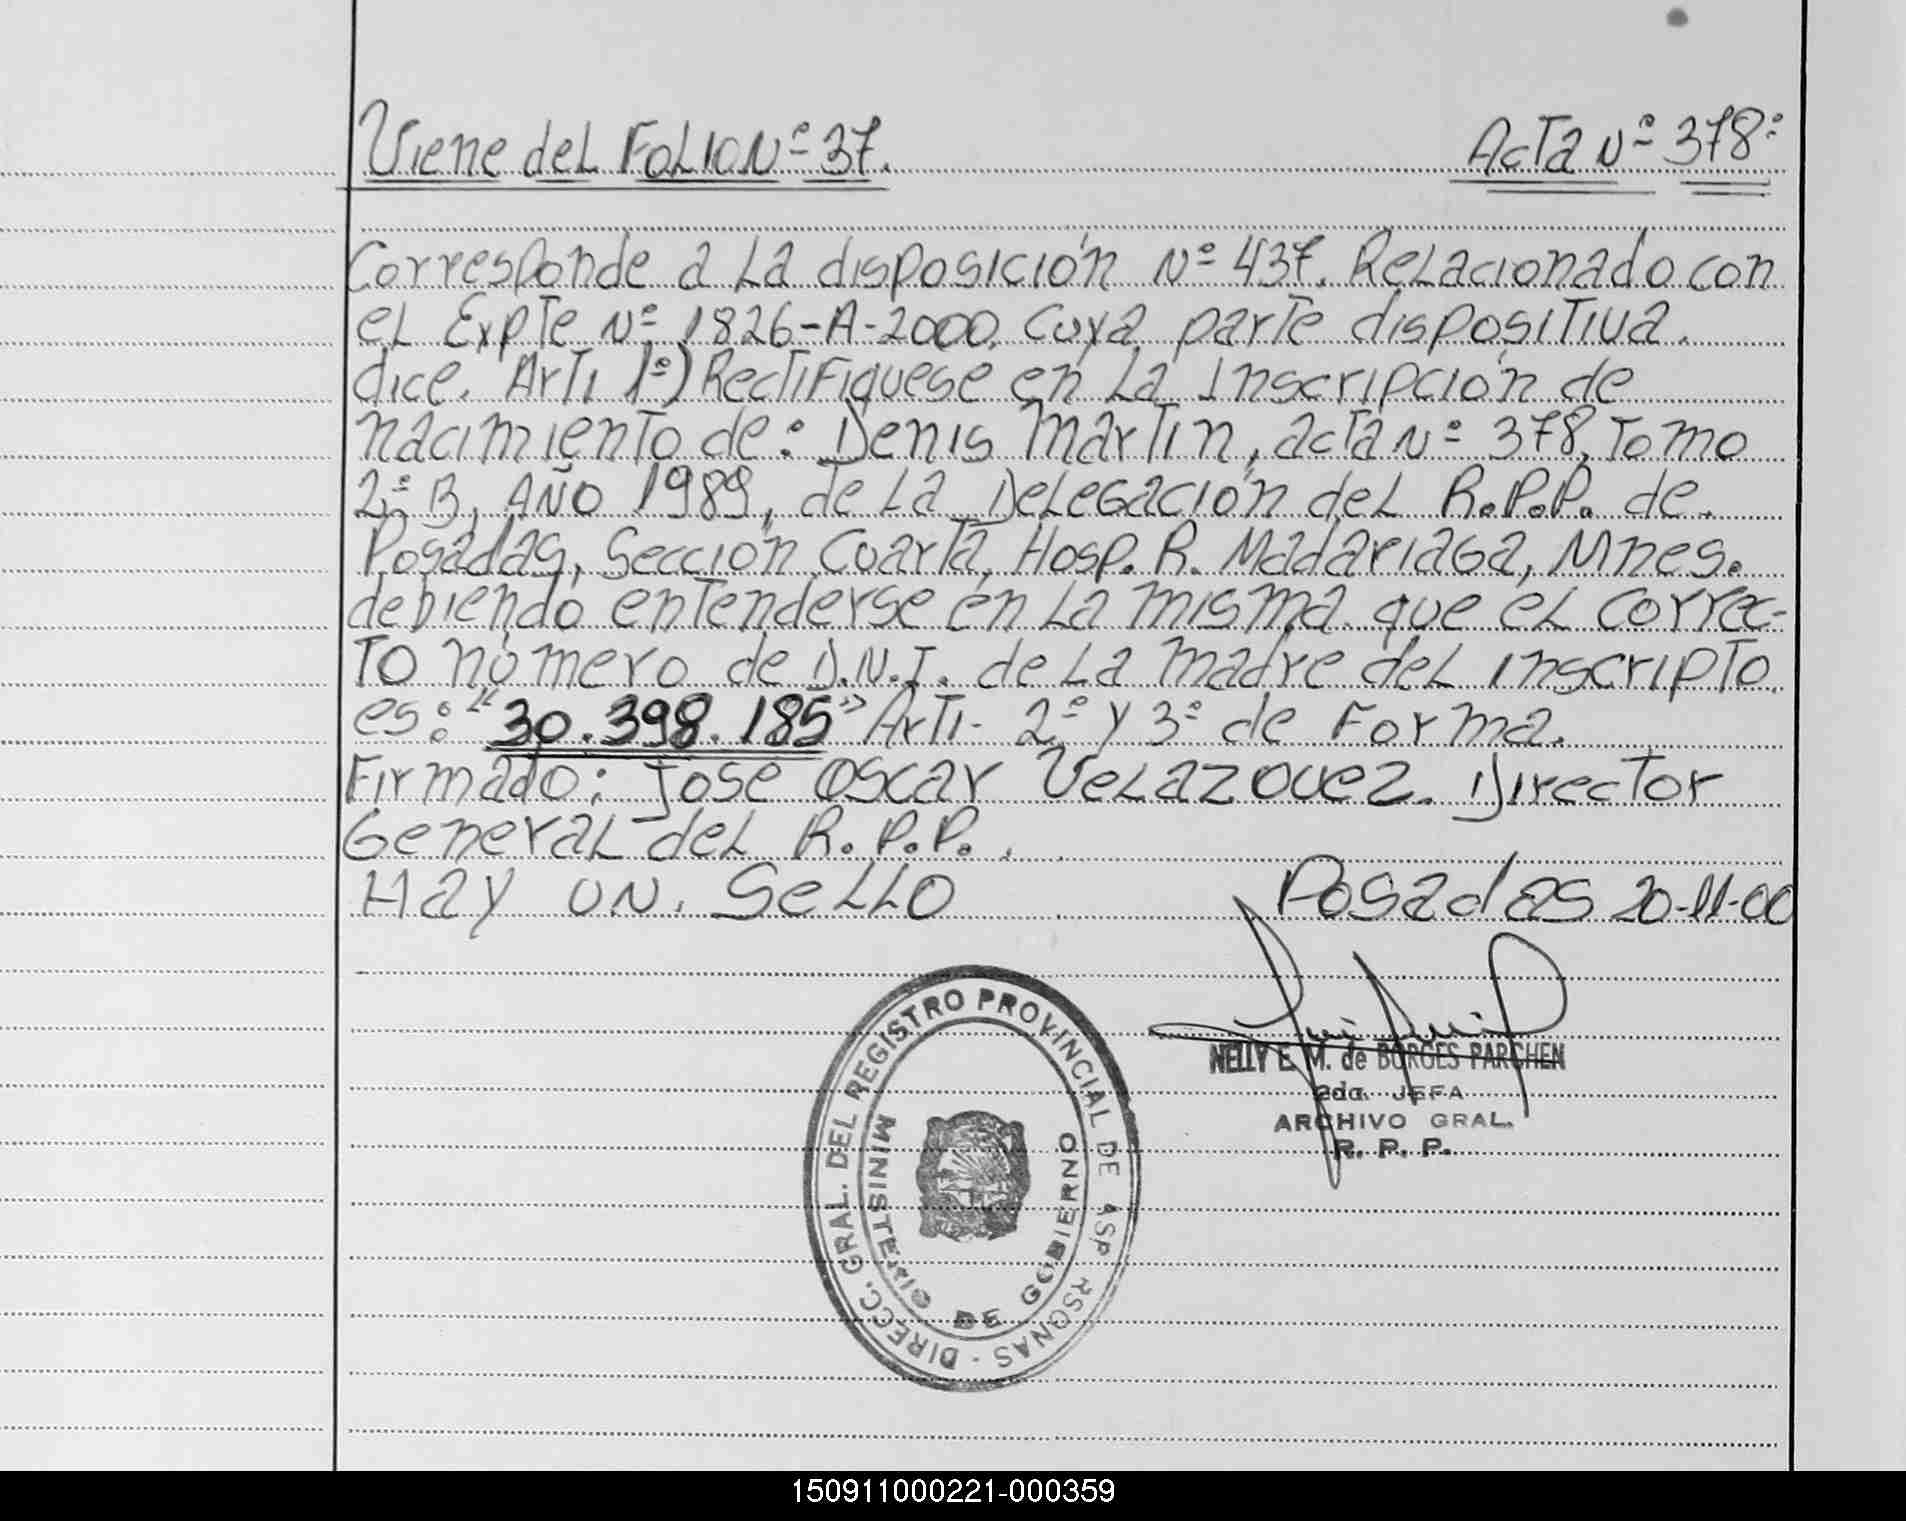 Viene del Folio Nº 37.
Acta Nº 378:
Corresponde a la disposición Nº 437. Relacionado con
el Expte Nº 1826-A-2000. Cuya parte dispositiva.
dice. Arti 1º) Rectifiquese en la Inscripción de
nacimiento de: Denis Martin, acta Nº 378, Tomo
2º B, Año 1989, de la Delegación del R.P.P. de.
Posadas, Sección Cuarta, Hosp. R. Madariaga, Mnes.
debiendo entenderse en la misma que el correc-
to número de D.N.I. de la madre del inscripto
es: "30.398.185" Arti- 2º y 3º de Forma.
Firmado: Jose Oscar Velazquez. Director
General del R.P.P..
Hay un. Sello
Posadas 20-11-00
NELLY E. M. de BORGES PARCHEN
2da. JEFA
ARCHIVO GRAL.
R. P. P.
DIRECC. GRAL. DEL REGISTRO PROVINCIAL DE
MINISTERIO DE GOBIERNO
150911000221-000359